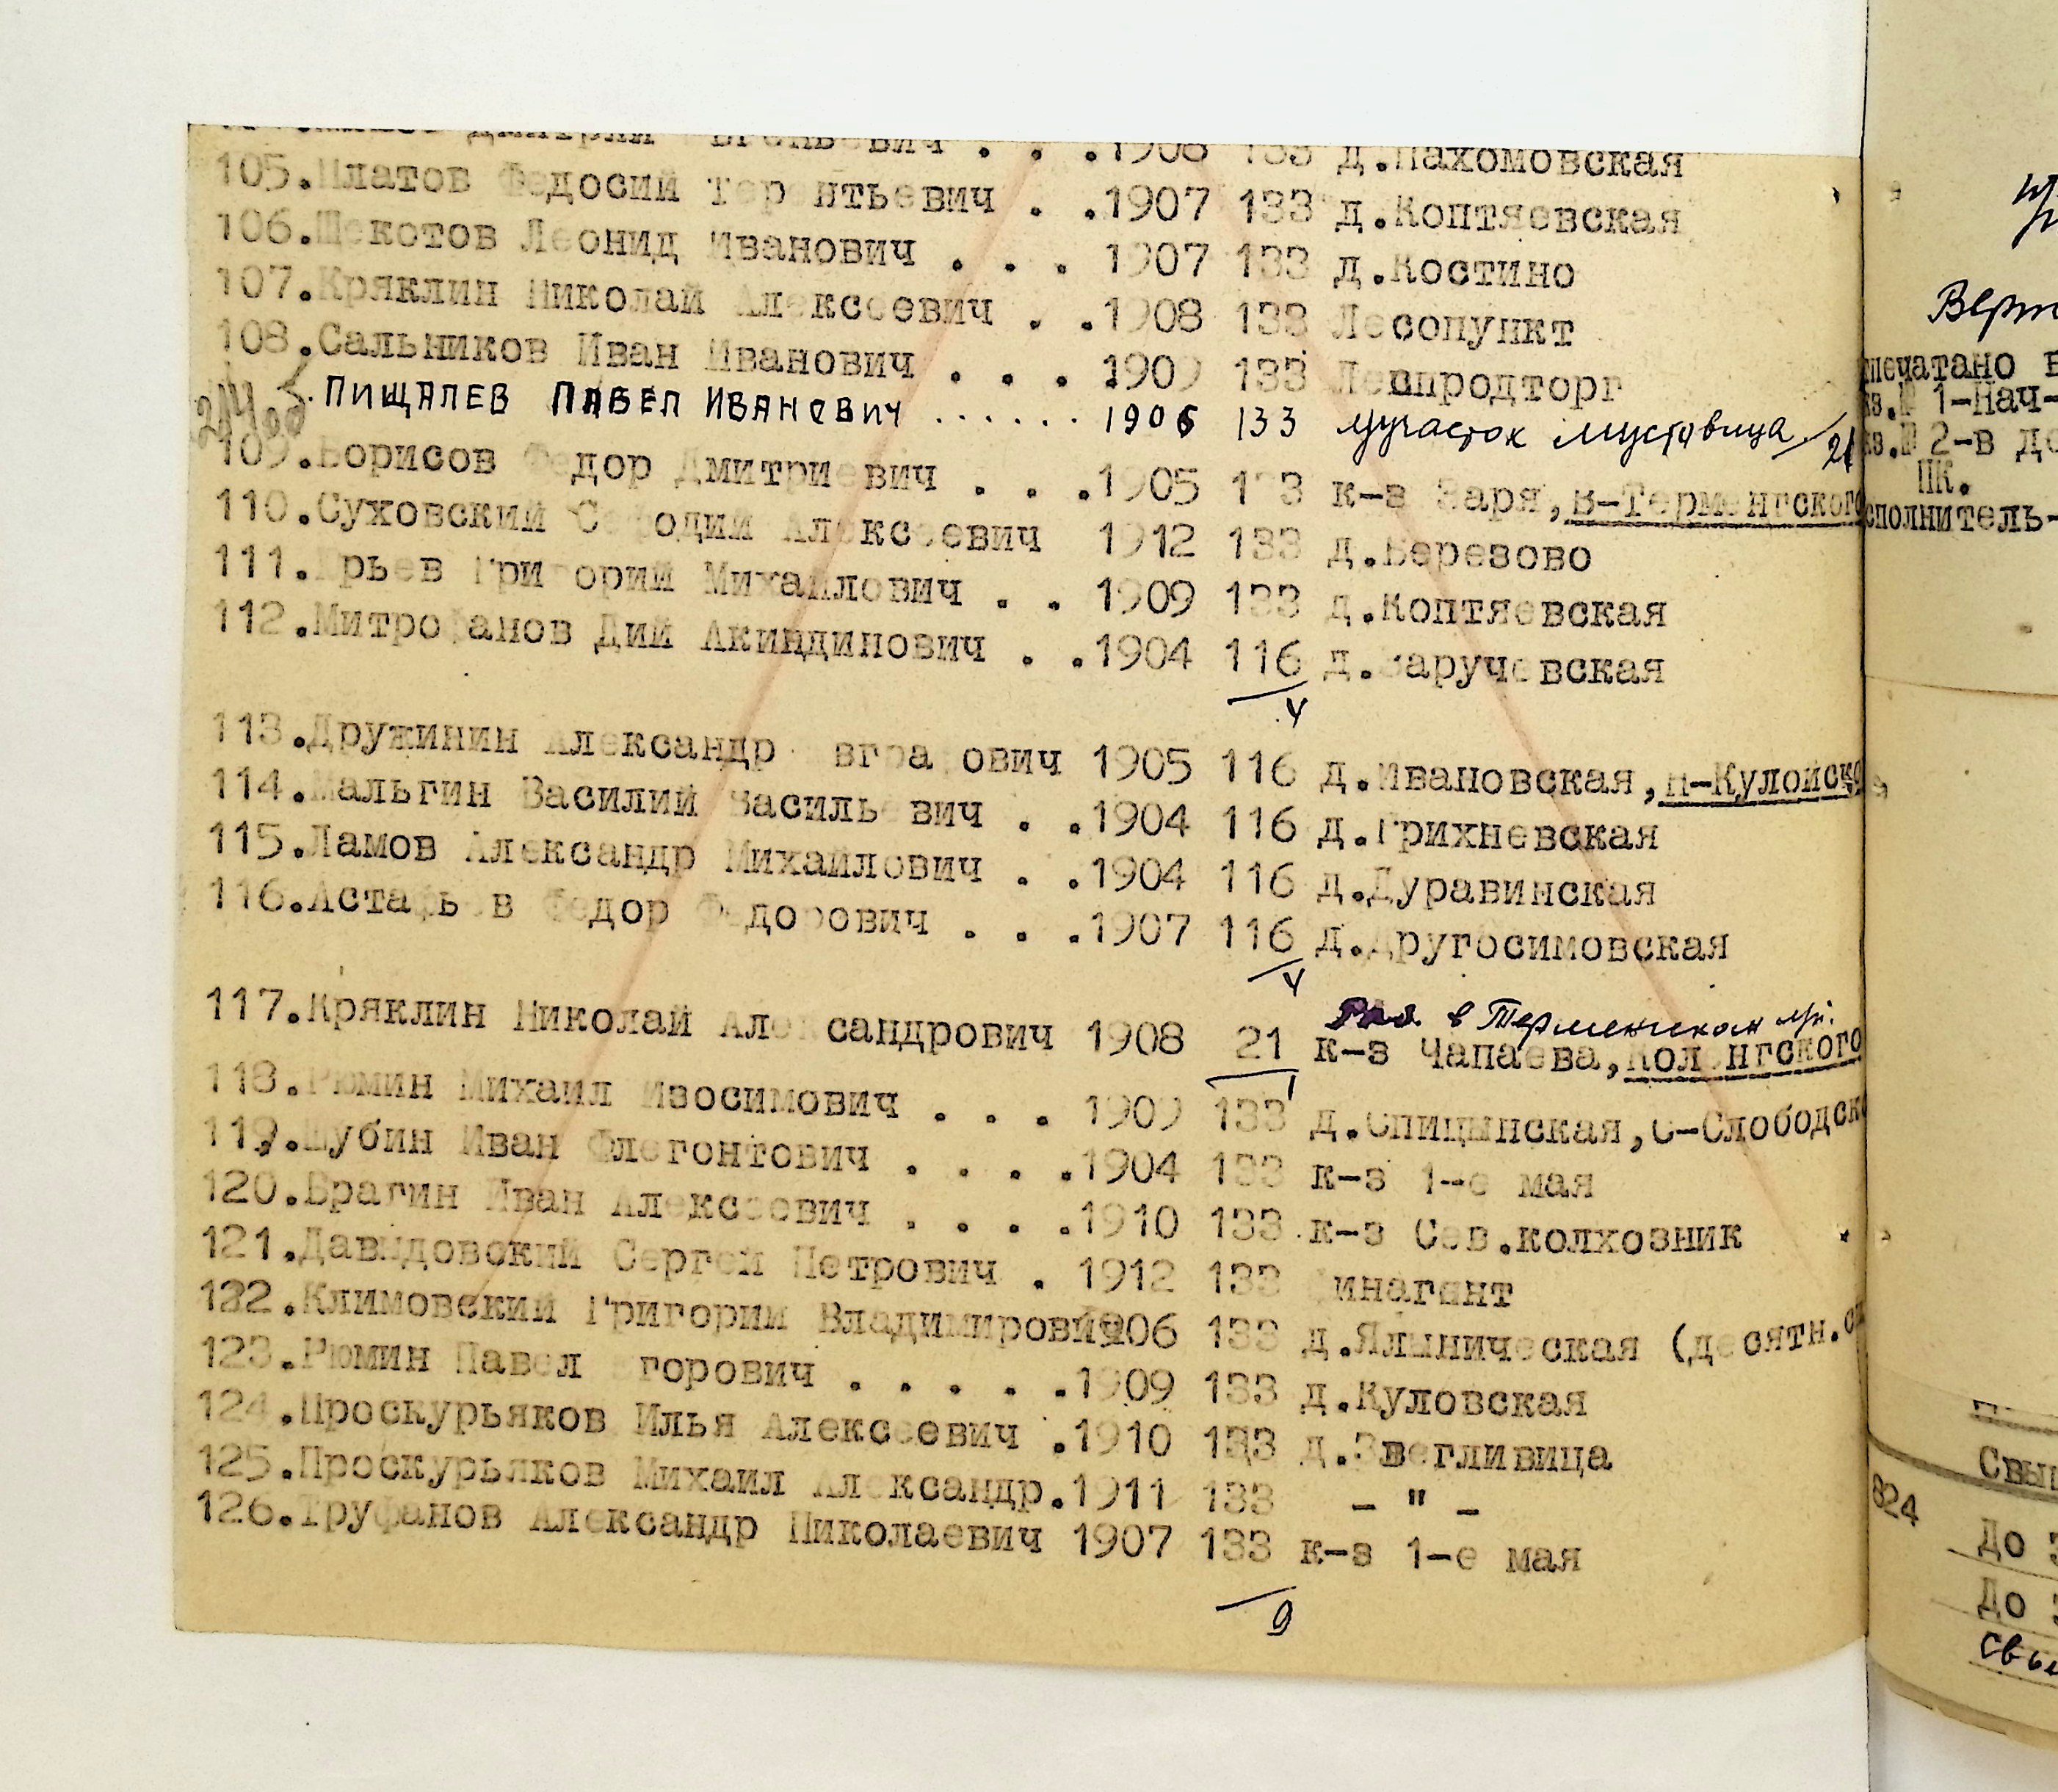 Дмитрий . . .1908 133 д.Пахомовская
105.Платов Федосий Терентьевич . .1907 133 д.Коптяевская
106.Щекотов Леонид Иванович . . . 1907 133 д.Костино
107.Кряклин Николай Алексеевич . .1908 133 Лесопункт
108.Сальников Иван Иванович . . . 1909 133 Леспродторг
ПИЩАЛЕВ ПАВЕЛ ИВАНОВИЧ ...... 1906 133
109.Борисов Федор Дмитриевич . . .1905 133 к-з Заря,В-Терменгского
110.Суховский Алексеевич 1912 133 д.Березово
111.Юрьев Григорий Михайлович . . 1909 133 д.Коптяевская
112.Митрофанов Дий Акиндинович . .1904 116 д.Заручевская
4
113.Дружинин Александр Евграфович 1905 116 д.Ивановская,Н-Кулойско
114.Мальгин Василий Васильевич . .1904 116 д.Грихневская
115.Ламов Александр Михайлович . .1904 116 д.Дуравинская
116.Астафьев Федор Федорович . . .1907 116 д.Другосимовская
4
в
117.Кряклин Николай Александрович 1908 21 к-з Чапаева,Коленгского
1
118.Рюмин Михаил Изосимович . . . 1909 133 д.Спицынская,С-Слободско
119.Шубин Иван Флегонтович . . . .1904 133 к-з 1-е мая
120.Брагин Иван Алексеевич . . . .1910 133 к-з Сев.колхозник
121.Давыдовский Сергей Петрович . 1912 133 Финагент
122.Климовский Григорий Владимирович 1906 133 (десятн.
123.Рюмин Павел Егорович . . . . .1909 133 д.Куловская
124.Проскурьяков Илья Алексеевич .1910 133 д.Звегливица
125.Проскурьяков Михаил Александр.1911 133 - " -
126.Труфанов Александр Николаевич 1907 133 к-з 1-е мая
9
Верт
печатано в
1-Нач-
2-в де
ПК.
сполнитель-
Свыш
824
До
До
Свы